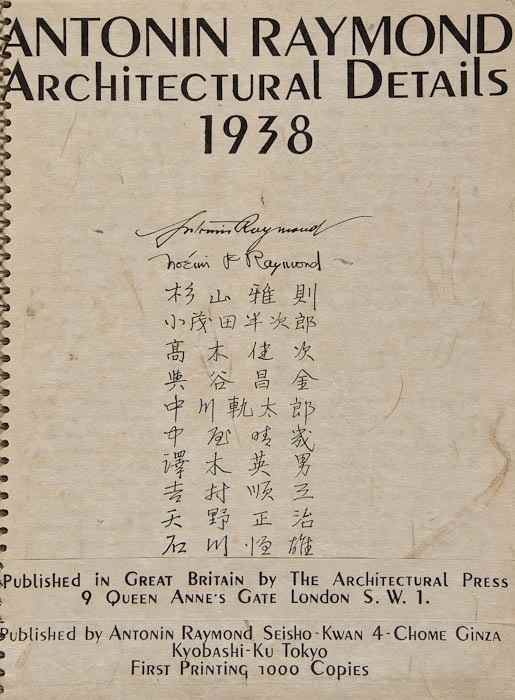 ANTONIN RAYMOND
Architectural Details
1938
Antonin Raymond
Noémi P Raymond
杉山雅則
小茂田半次郎
髙木健次
奥谷昌金
中川軌太郎
中屋晴幾
澤木英男
吉村順三
天野正治
石川恒雄
Published in Great Britain by The Architectural Press
9 Queen Anne's Gate London S. W. 1.
Published by Antonin Raymond Seisho-Kwan 4-Chome Ginza
Kyobashi-Ku Tokyo
First Printing 1000 Copies